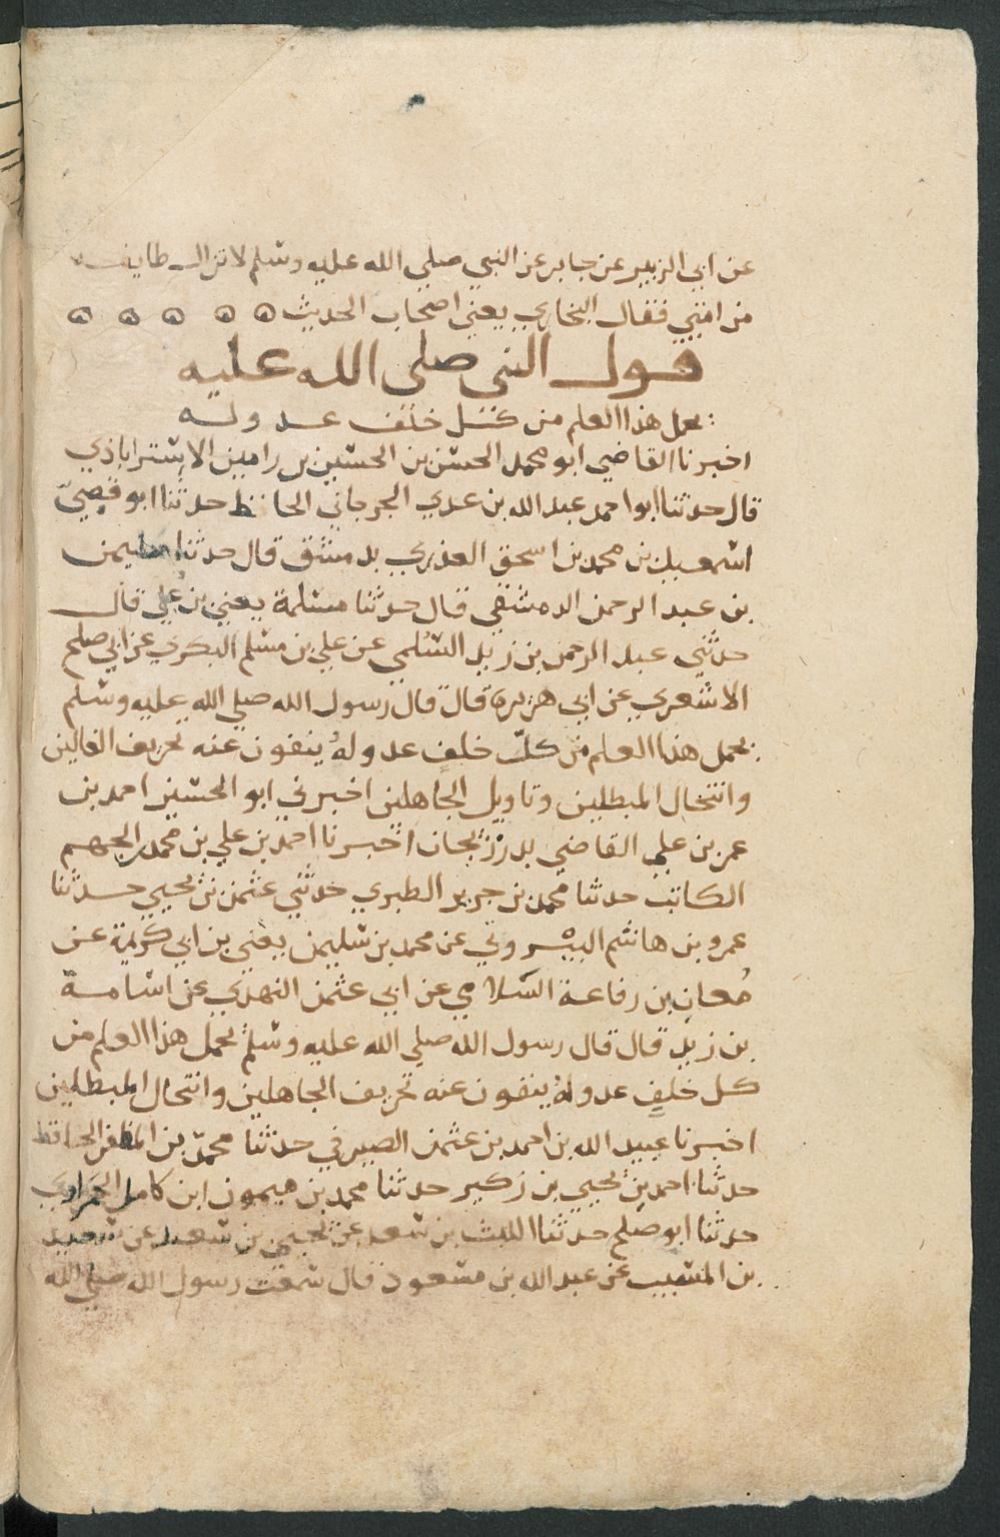 عن ابي الزبير عن جابر عن النبي صلي الله عليه وسلم لا تزال طايفه
من امتي فقال البخاري يعني اصحاب الحديث ۞ ۞ ۞ ۞ ۞
قول النبي صلى الله عليه
يحمل هذا العلم من كل خلف عدوله
اخبرنا القاضي ابو محمد الحسن بن الحسين بن رامين الاستراباذي
قال حدثنا ابو احمد عبد الله بن عدي الجرجاني الحافظ حدثنا ابو قصيّ
اسمعيل بن محمد بن اسحق العذري بدمشق قال حدثنا سليمن
بن عبد الرحمن الدمشقي قال حدثنا مسلمة يعني بن عُلي قال
حدثني عبد الرحمن بن زيد السُلمي عن علي بن مسلم البكري عن ابي صلح
الاشعري عن ابي هريرة قال قال رسول الله صلي الله عليه وسلم
يحمل هذا العلم من كلّ خلف عدولهُ ينفون عنه تحريف الغالين
وانتحال المبطلين وتاويل الجاهلين اخبرني ابو الحسين احمد بن
عمر بن علي القاضي بدرزيجان اخبرنا احمد بن علي بن محمد بن الجهم
الكاتب حدثنا محمد بن جرير الطبري حدثني عثمن بن يحيي حدثنا
عمرو بن هاشم البيروتي عن محمد بن سليمن يعني بن ابي كريمة عن
مُعان بن رفاعة السّلامي عن ابي عثمن النهدي عن اسامة
بن زيد قال قال رسول الله صلي الله عليه وسلم يحمل هذا العلم من
كل خلفٍ عدولهُ ينفون عنه تحريف الجاهلين وانتحال المبطلين
اخبرنا عبيد الله بن احمد بن عثمن الصيرفي حدثنا محمّد بن المظفر الحافظ
حدثنا احمد بن يحيي بن زكير حدثنا محمد بن ميمون ابن كامل الحمراوي
حدثنا ابو صلح حدثنا الليث بن سعد عن يحيي بن سعيد عن سعيد
بن المسيب عن عبد الله بن مسعود قال سمعت رسول الله صلي الله